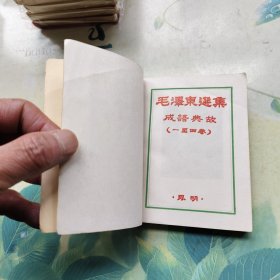 毛澤東選集
成語典故
(一至四卷)
·昆明·